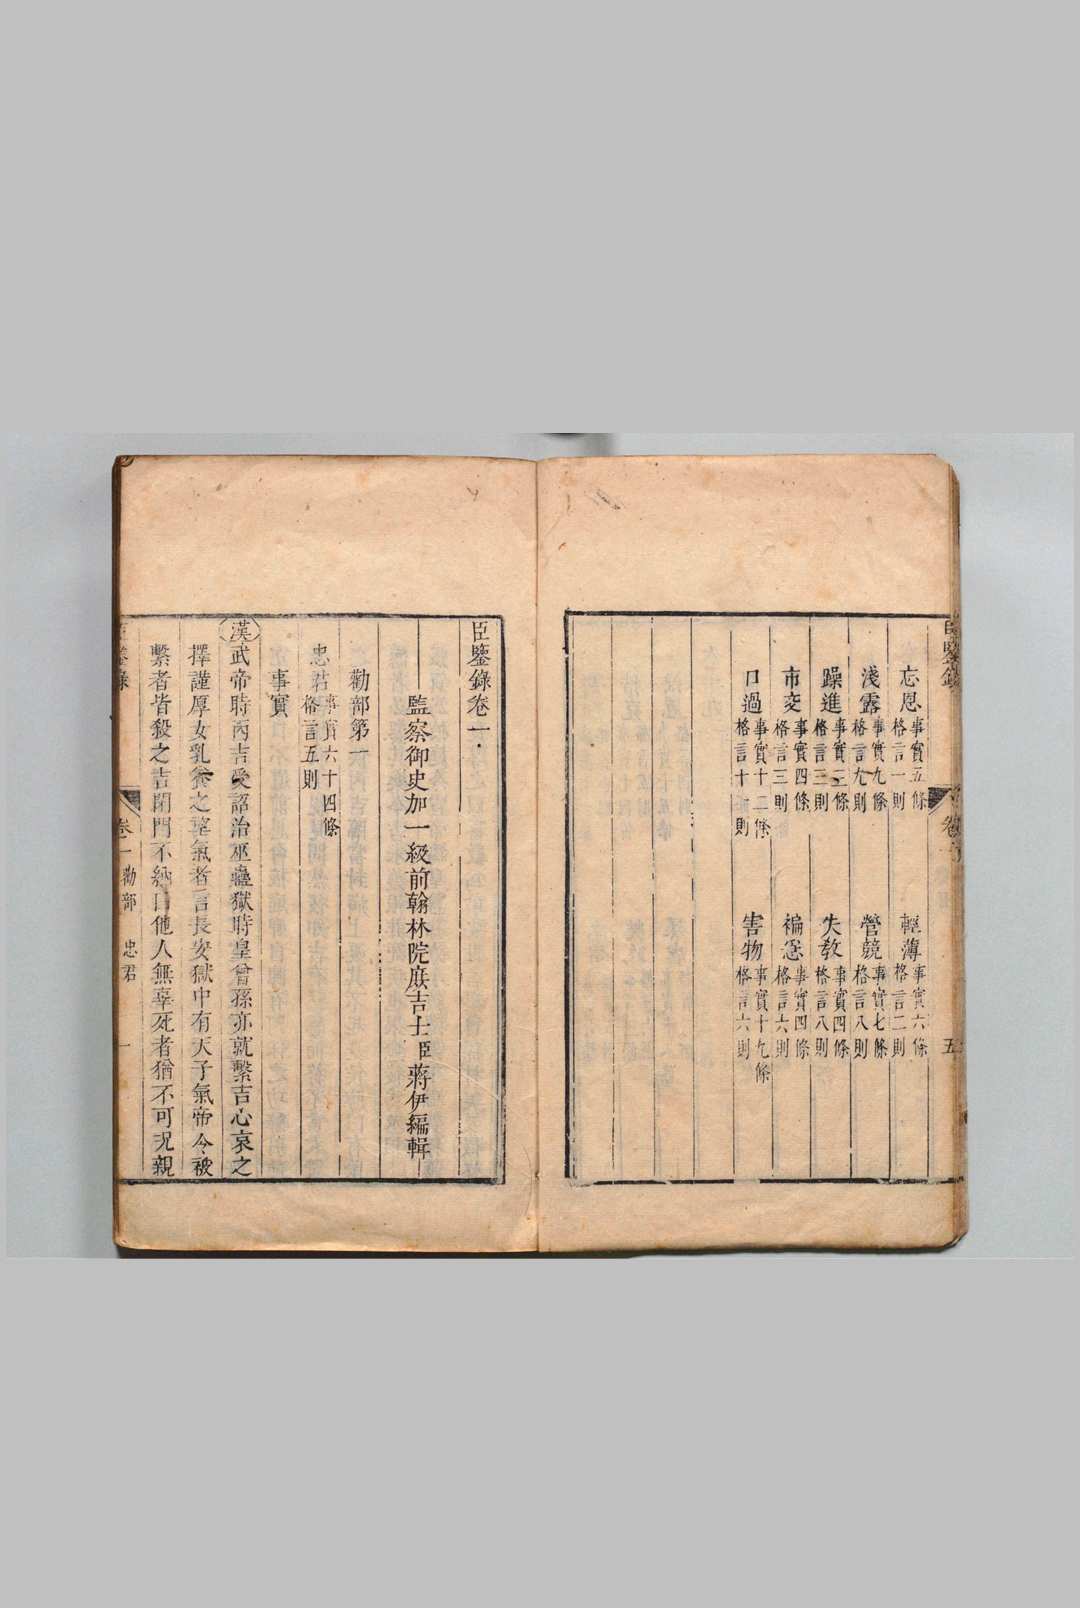 臣鑒錄
忘恩 事實五條 格言一則 輕薄 事實六條 格言二則
淺露 事實九條 格言九則 營競 事實七條 格言八則
躁進 事實三條 格言三則 失教 事實四條 格言八則
市交 事實四條 格言三則 褊急 事實四條 格言六則
口過 事實十二條 格言十五則 害物 事實十九條 格言六則
五
臣鑒錄卷一
監察御史加一級前翰林院庶吉士臣蔣伊編輯
勸部第一
忠君 事實六十四條 格言五則
事實
漢武帝時丙吉受詔治巫蠱獄時皇曾孫亦就繫吉心哀之
擇謹厚女乳養之望氣者言長安獄中有天子氣帝令被
繫者皆殺之吉閉門不納曰他人無辜死者猶不可況親
臣鑒錄 卷一 勸部 忠君 一